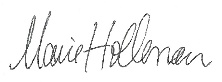 Marie Holleman